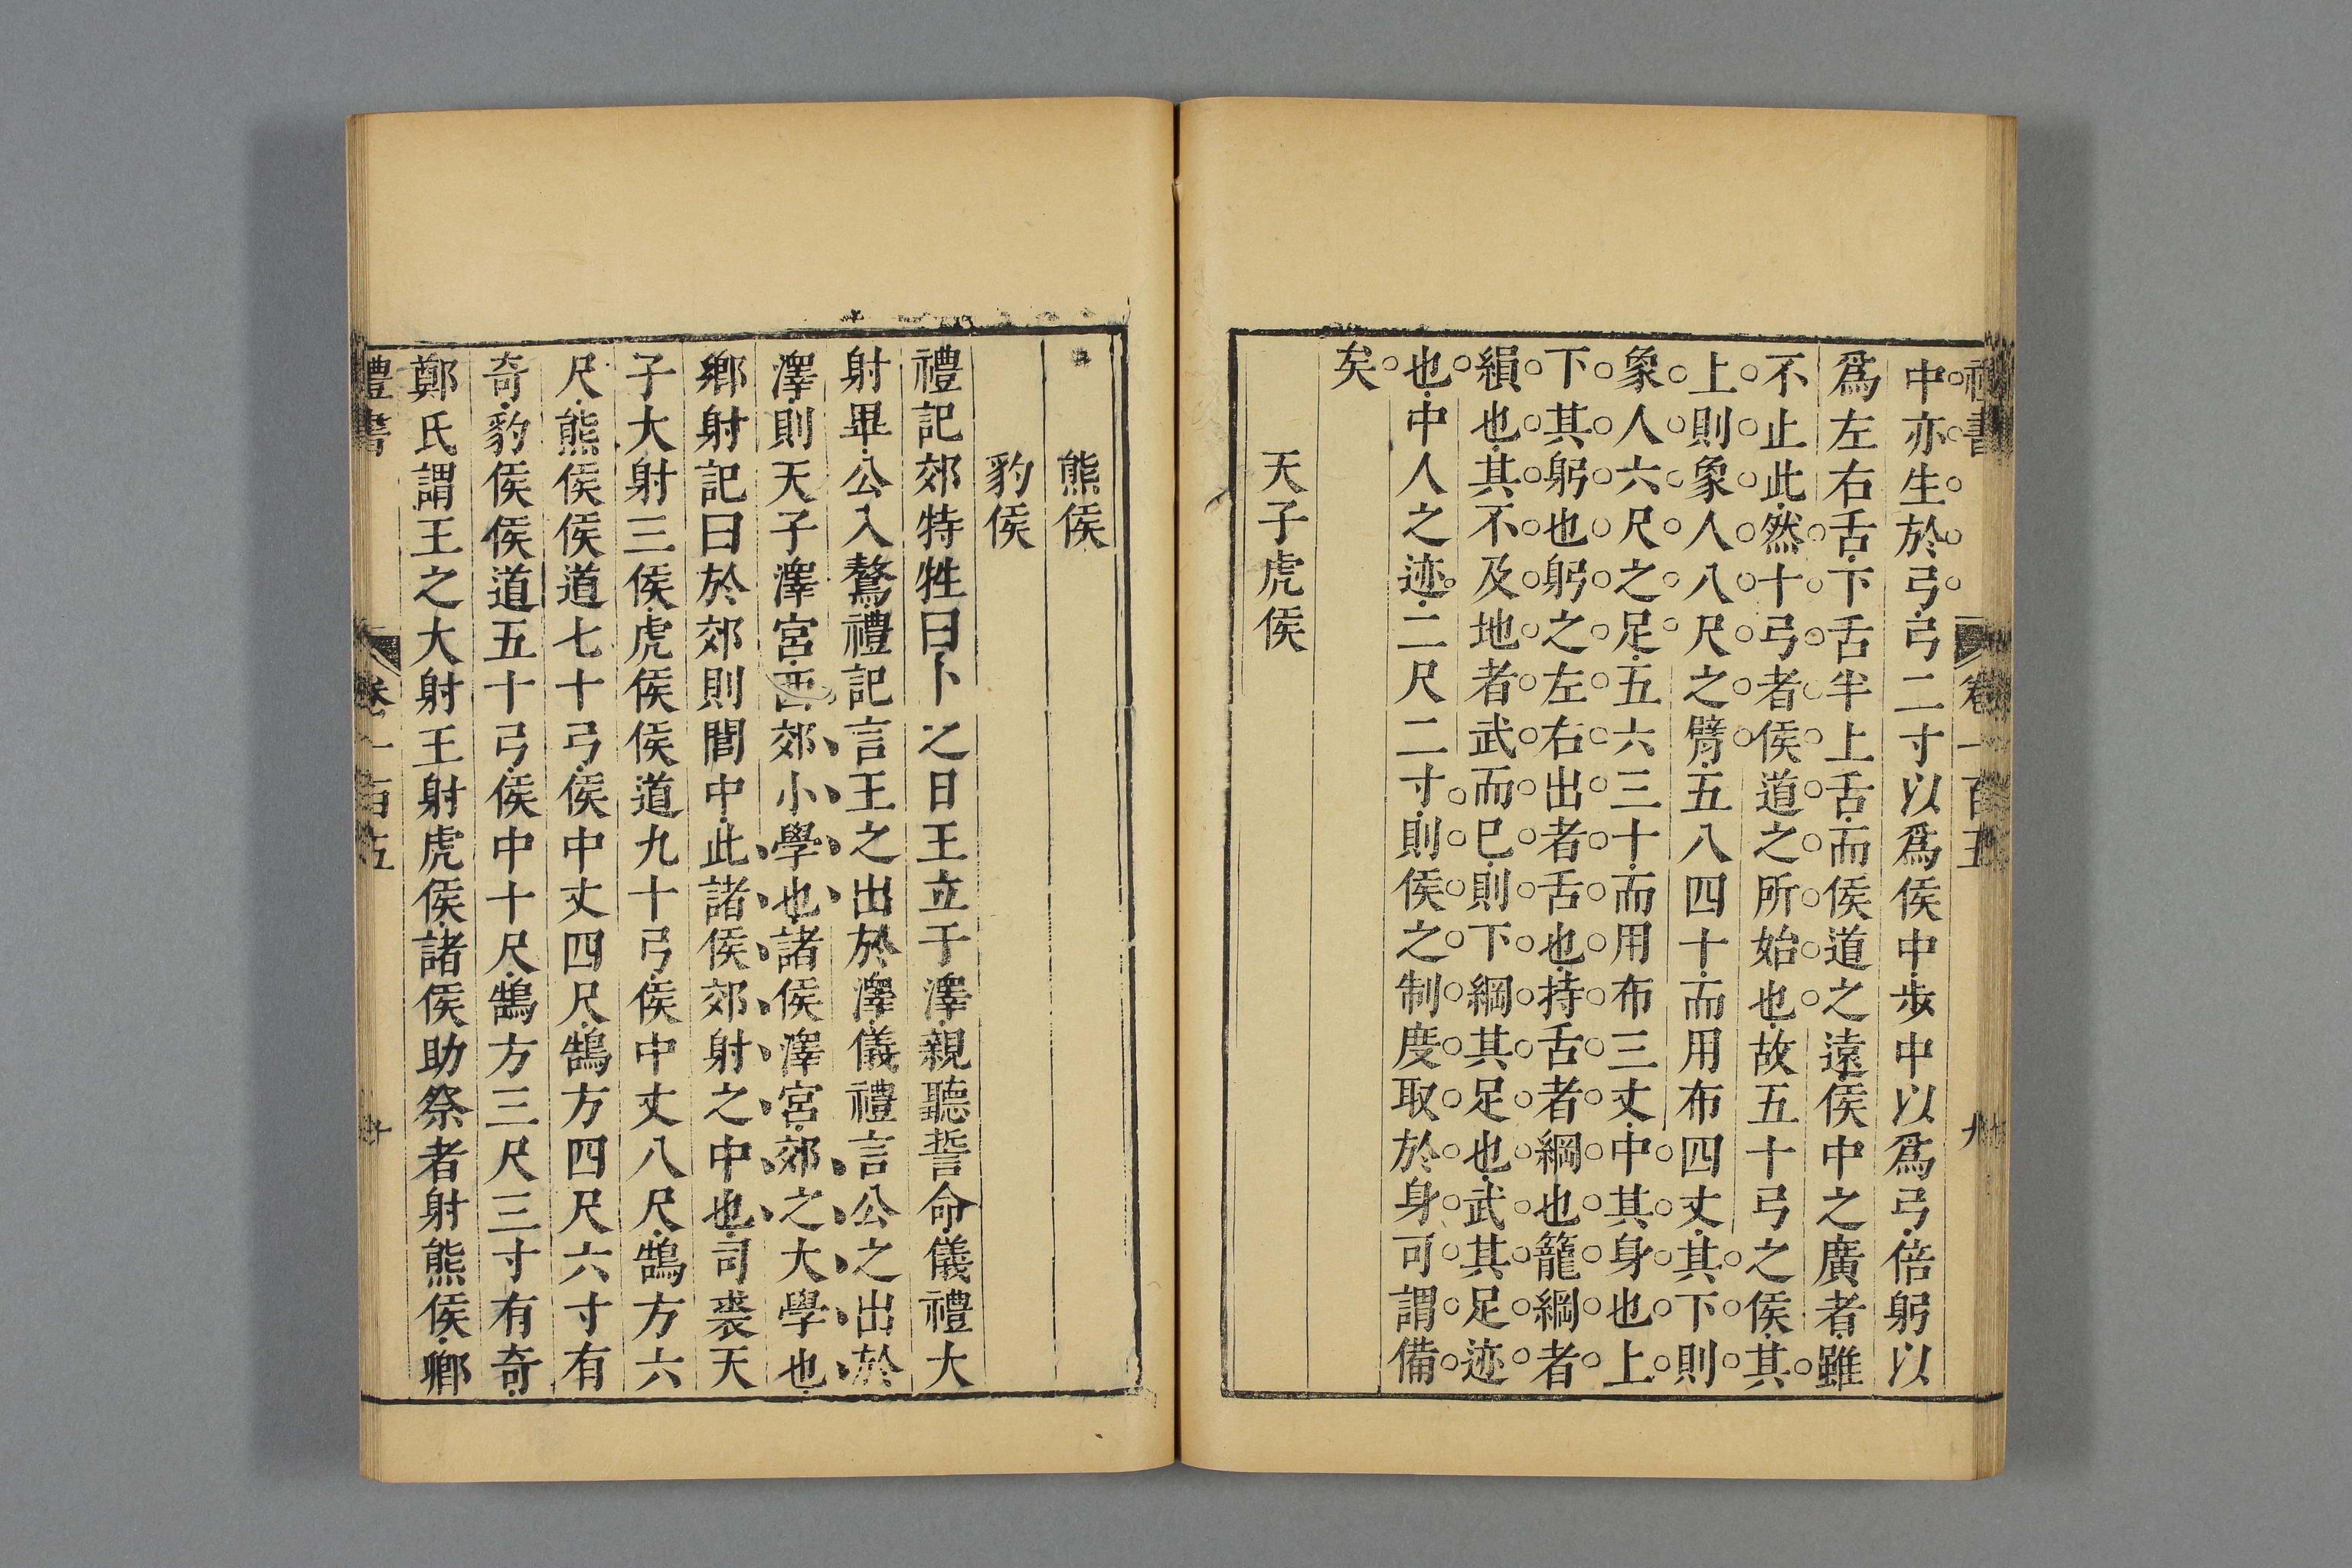 禮書 卷一百五 九
中亦生於弓弓二寸以爲侯中步中以爲弓倍躬以
爲左右舌下舌半上舌而侯道之遠侯中之廣者雖
不止此然十弓者侯道之所始也故五十弓之侯其
上則象人八尺之臂五八四十而用布四丈其下則
象人六尺之足五六三十而用布三丈中其身也上
下其躬也躬之左右出者舌也持舌者綱也籠綱者
縜也其不及地者武而已則下綱其足也武其足迹
也中人之迹二尺二寸則侯之制度取於身可謂備
矣
天子虎侯
熊侯
豹侯
禮記郊特牲曰卜之日王立于澤親聽誓命儀禮大
射畢公入驁禮記言王之出於澤儀禮言公之出於
澤則天子澤宮西郊小學也諸侯澤宮郊之大學也
鄉射記曰於郊則閭中此諸侯郊射之中也司裘天
子大射三侯虎侯侯道九十弓侯中丈八尺鵠方六
尺熊侯侯道七十弓侯中丈四尺鵠方四尺六寸有
奇豹侯侯道五十弓侯中十尺鵠方三尺三寸有奇
鄭氏謂王之大射王射虎侯諸侯助祭者射熊侯鄉
禮書 卷一百五 十